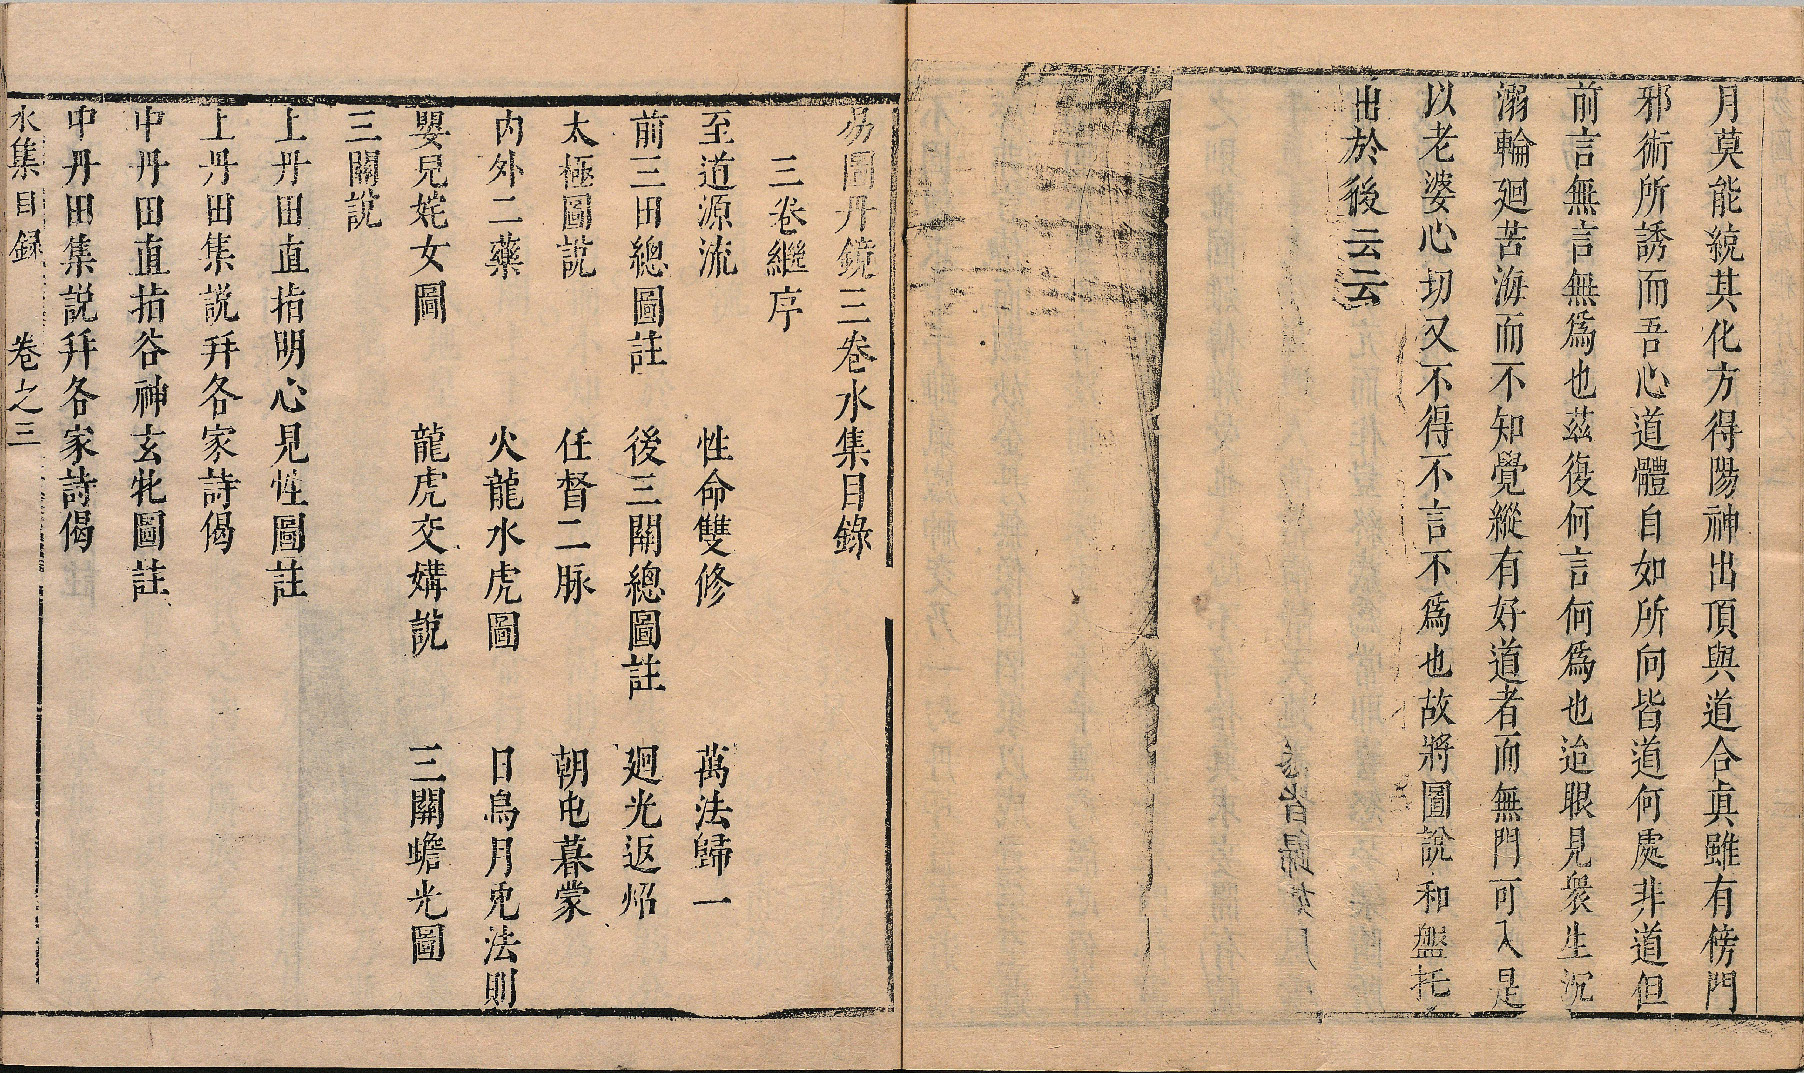 月莫能統其化方得陽神出頂與道合眞雖有傍門
邪術所誘而吾心道體自如所向皆道何處非道但
前言無言無爲也茲復何言何爲也迨眼見衆生沉
溺輪廻苦海而不知覺縱有好道者而無門可入是
以老婆心切又不得不言不爲也故將圖說和盤托
出於後云云
易圖丹鏡三卷水集目錄
三卷繼序
至道源流 性命雙修 萬法歸一
前三田總圖註 後三關總圖註 廻光返炤
太極圖說 任督二脉 朝屯暮蒙
内外二藥 火龍水虎圖 日烏月兎法則
嬰兒姹女圖 龍虎交媾說 三關蟾光圖
三關說
上丹田直指明心見性圖註
上丹田集說并各家詩偈
中丹田直指谷神玄牝圖註
中丹田集說并各家詩偈
水集目録 卷之三